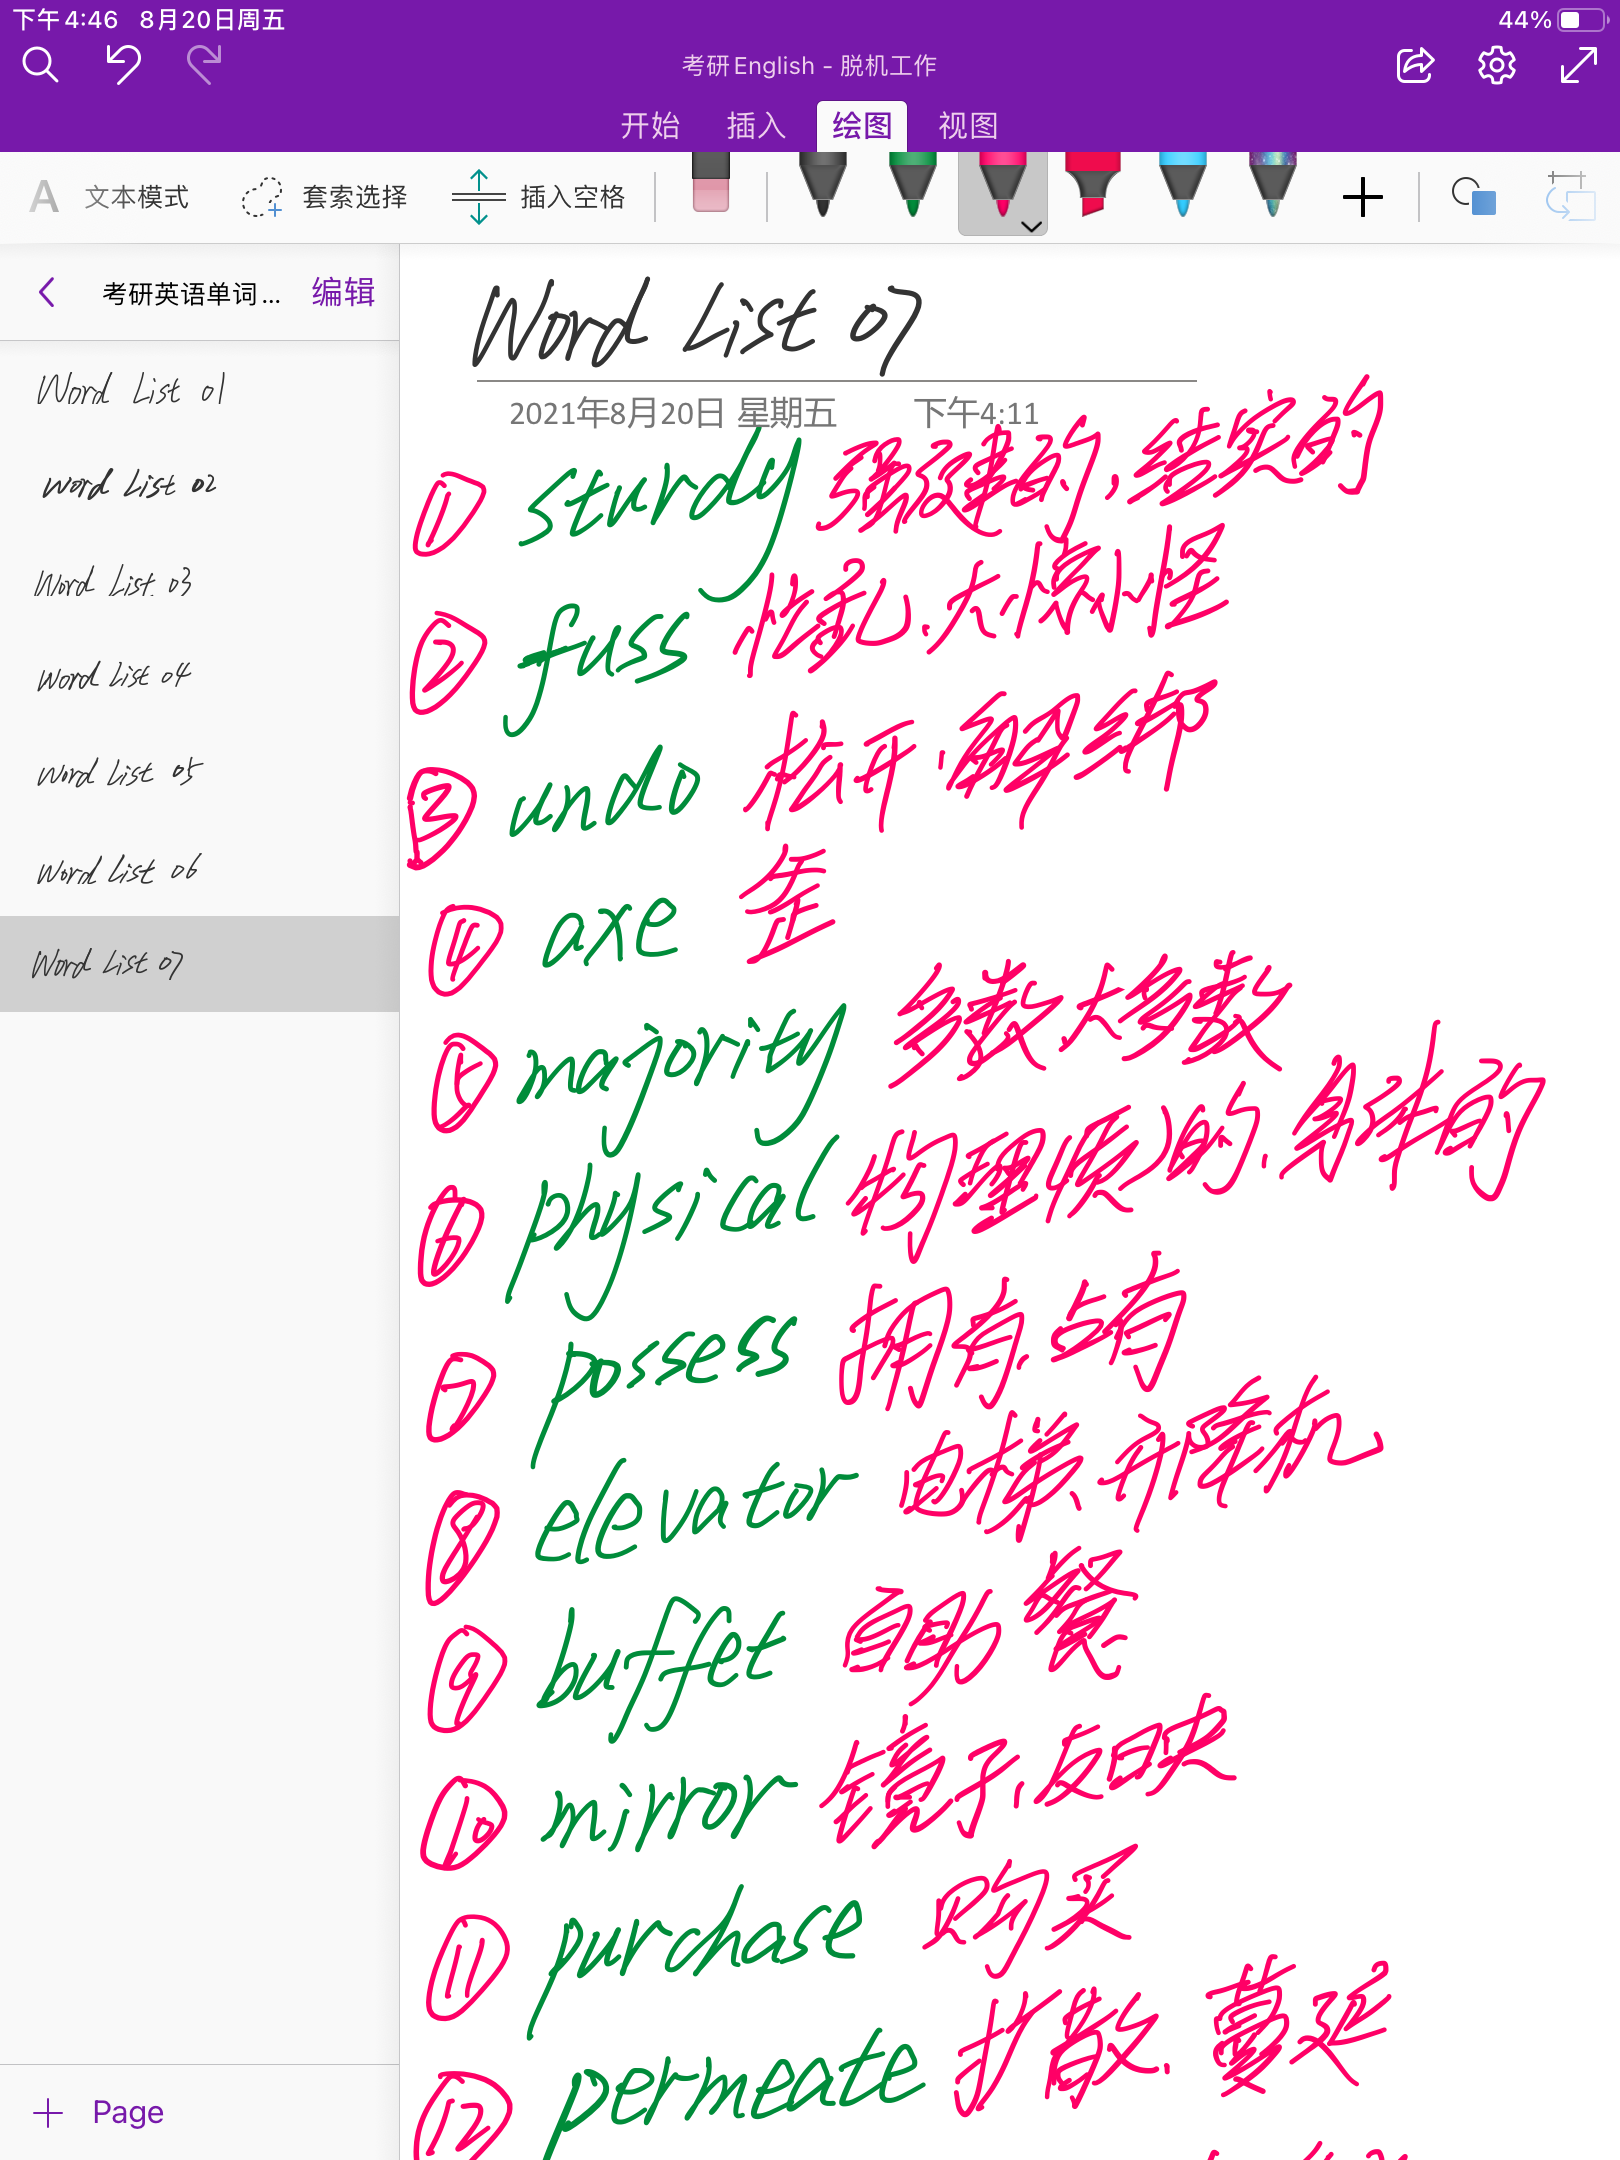 下午4:46 8月20日周五 44%
考研English - 脱机工作
开始 插入 绘图 视图
A 文本模式 套索选择 插入空格
考研英语单词... 编辑
Word List 01
Word List 02
Word List 03
Word List 04
Word List 05
Word List 06
Word List 07
+ Page
Word List 07
2021年8月20日 星期五 下午4:11
① sturdy 强健的,结实的
② fuss 忙乱、大惊小怪
③ undo 松开、解绑
④ axe 歪
⑤ majority 多数 大多数
⑥ physical 物理(质)的、身体的
⑦ possess 拥有 占有
⑧ elevator 电梯、升降机
⑨ buffet 自助餐
⑩ mirror 镜子、反映
⑪ purchase 购买
⑫ permeate 扩散、蔓延